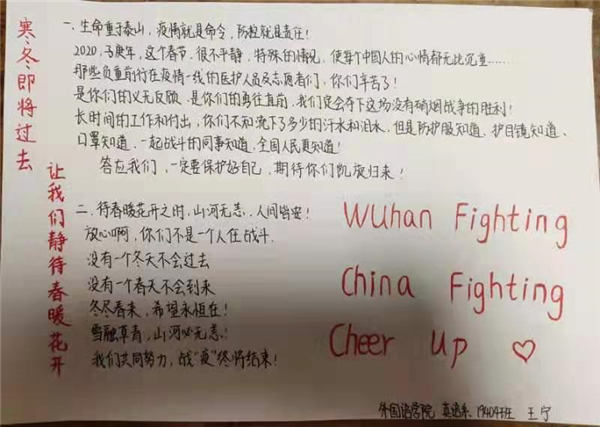 寒冬即将过去
让我们静待春暖花开
一、生命重于泰山，疫情就是命令，防控就是责任！
2020，子庚年，这个春节，很不平静，特殊的情况，使每个中国人的心情都无比沉重……
那些负重前行在疫情一线的医护人员及志愿者们，你们辛苦了！
是你们的义无反顾，是你们的勇往直前，我们定会夺下这场没有硝烟战争的胜利！
长时间的工作和付出，你们不知流下了多少的汗水和泪水，但是防护服知道、护目镜知道、
口罩知道、一起战斗的同事知道、全国人民真知道！
答应我们，一定要保护好自己，期待你们凯旋归来！
二、待春暖花开之时，山河无恙，人间皆安！
放心啊，你们不是一个人在战斗.
没有一个冬天不会过去
没有一个春天不会到来
冬尽春来，希望永恒在！
雪融草青，山河必无恙！
我们共同努力，战“疫”终将结束！
WUhan Fighting
China Fighting
Cheer Up ♡
外国语学院 英语系 19404班 王宁